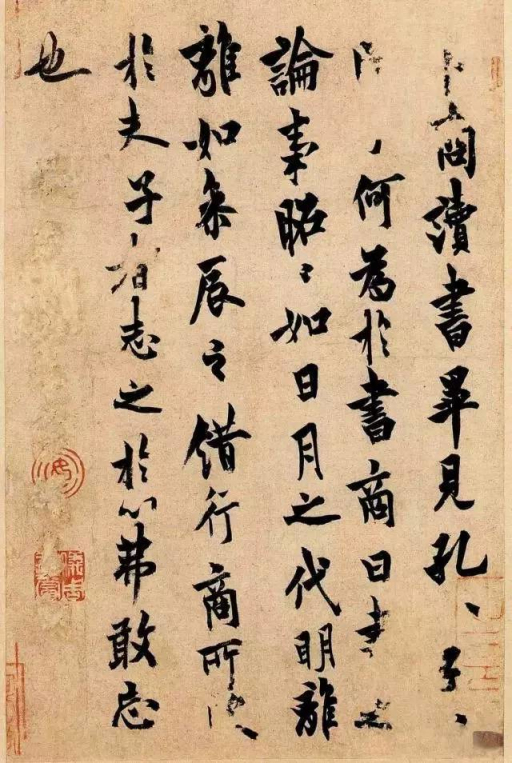 讀書畢見孔〻子〻
何為於書商曰書之
論事昭〻如日月之代明離
離如參辰之錯行商所受
於夫子者志之於心弗敢忘
也